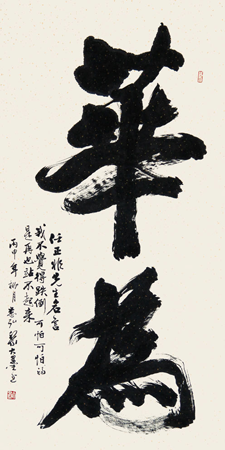 華為
任正非先生名言
我不覺得跌倒可怕可怕的
是再也站不起來
丙申年柳月